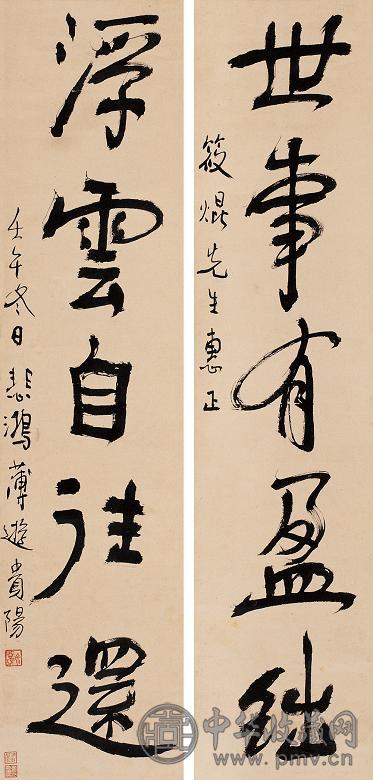 世事有盈絀
筱焜先生惠正
浮雲自往還
壬午冬日悲鴻薄遊貴陽
中华收藏网
www.pmv.cn